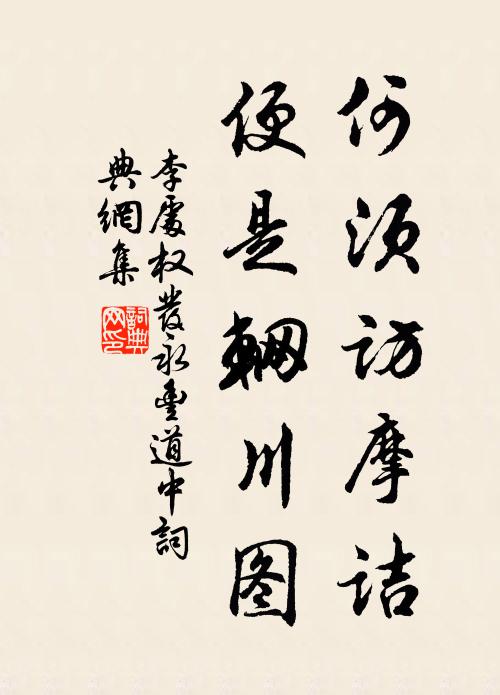 何须访摩诘
便是辋川图
李處权發永豐道中詞
典網集
詞典
网印